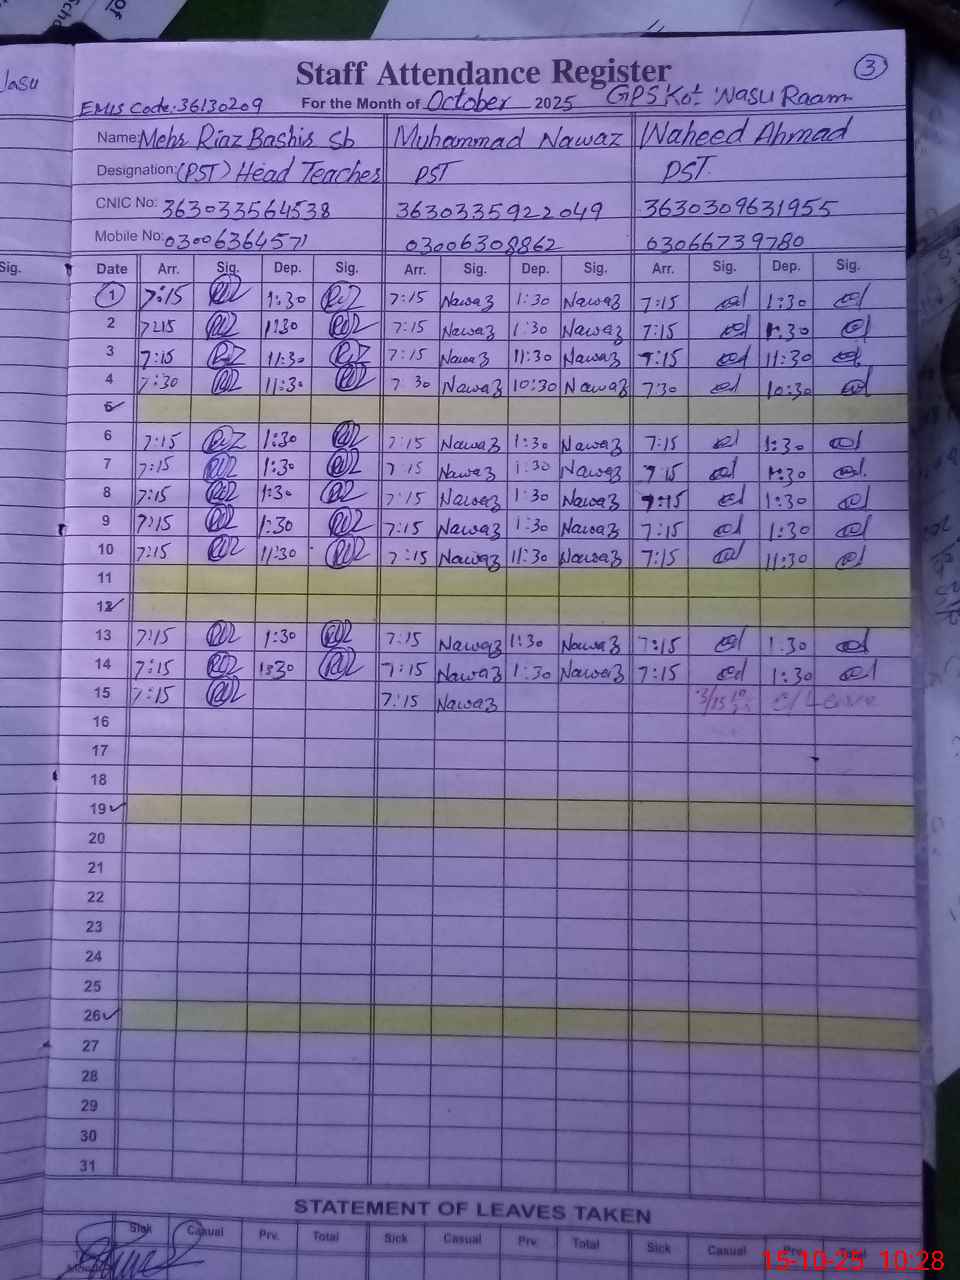 of
Jasu
Staff Attendance Register
3
EMIS Code: 36130209 For the Month of October 2025 GPS Kot Wasu Raam
Name: Mehr Riaz Bashir Sb Muhammad Nawaz Waheed Ahmad
Designation: (PST) Head Teacher PST PST.
CNIC No: 363033564538 3630335922049 3630309631955
Mobile No: 03006364571 03006308862 03066739780
Sig. Date Arr. Sig. Dep. Sig. Arr. Sig. Dep. Sig. Arr. Sig. Dep. Sig.
1 7:15 1:30 7:15 Nawaz 1:30 Nawaz 7:15 1:30
2 7:15 1:30 7:15 Nawaz 1:30 Nawaz 7:15 1:30
3 7:15 11:30 7:15 Nawaz 11:30 Nawaz 7:15 11:30
4 7:30 11:30 7 30 Nawaz 10:30 Nawaz 730 10:30
5
6 7:15 1:30 7:15 Nawaz 1:30 Nawaz 7:15 1:30
7 7:15 1:30 7 15 Nawaz 1:30 Nawaz 7 15 1:30
8 7:15 1:30 7:15 Nawaz 1:30 Nawaz 7:15 1:30
9 7:15 1:30 7:15 Nawaz 1:30 Nawaz 7:15 1:30
10 7:15 11:30 7:15 Nawaz 11:30 Nawaz 7:15 11:30
11
12
13 7:15 1:30 7:15 Nawaz 1:30 Nawaz 7:15 1:30
14 7:15 1:30 7:15 Nawaz 1:30 Nawaz 7:15 1:30
15 7:15 7:15 Nawaz C/Leave
16
17
18
19
20
21
22
23
24
25
26
27
28
29
30
31
STATEMENT OF LEAVES TAKEN
Sick Casual Prv. Total Sick Casual Prv. Total Sick Casual Prv. Total
15-10-25 10:28